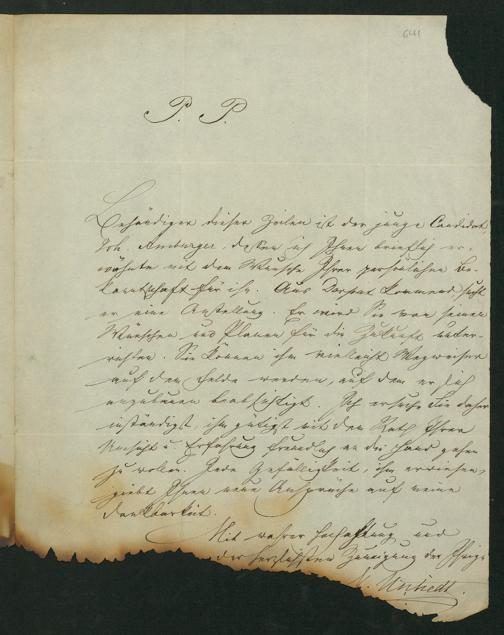 641
P. P.
Behändiger dieser Zeilen ist der junge Candidat
Joh. Amburger, dessen ich Ihnen brieflich er-
wähnte mit dem Wunsche Ihrer persönlichen Be-
kanntschaft für ihn. Aus Dorpat kommend sucht
er eine Anstellung. Er wird Sie von seinen
Wünschen und Planen für die Zukunft unter-
richten. Sie können ihm vielleicht Wegweiser
auf dem Felde werden, auf dem er sich
anzubauen beabsichtigt. Ich ersuche Sie daher
inständigst, ihm gütigst mit dem Rath Ihrer
Ansicht u. Erfahrung freundlich an die Hand gehen
zu wollen. Jede Gefälligkeit, ihm erwiesen,
giebt Ihnen neue Ansprüche auf meine
Dankbarkeit.
Mit wahrer Hochachtung und
der herzlichsten Zuneigung der Ihrige